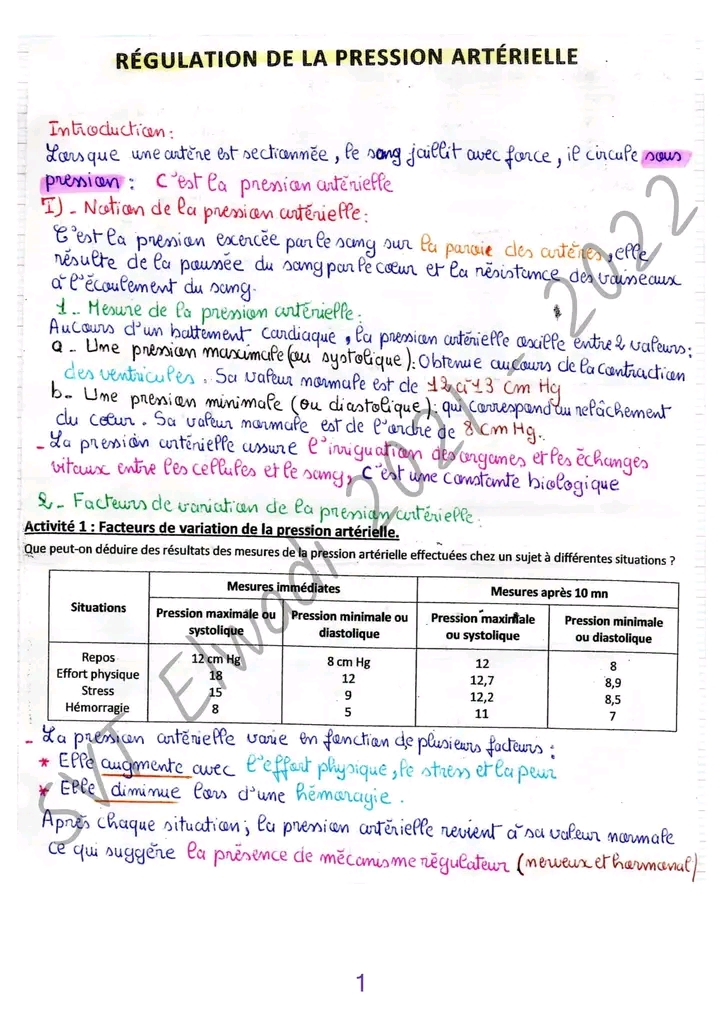 RÉGULATION DE LA PRESSION ARTÉRIELLE
Introduction :
Lorsque une artère est sectionnée, le sang jaillit avec force, il circule sous
pression : C'est la pression artérielle
I) - Notion de la pression artérielle :
C'est la pression exercée par le sang sur la paroie des artères, elle
résulte de la poussée du sang par le cœur et la résistance des vaisseaux
à l'écoulement du sang.
1 - Mesure de la pression artérielle :
Au cours d'un battement cardiaque, la pression artérielle oscille entre 2 valeurs :
a - Une pression maximale (ou systolique) : Obtenue au cours de la contraction
des ventricules. Sa valeur normale est de 12 à 13 Cm Hg
b - Une pression minimale (ou diastolique) : qui correspond au relâchement
du cœur. Sa valeur normale est de l'ordre de 8 cm Hg.
- La pression artérielle assure l'irriguation des organes et les échanges
vitaux entre les cellules et le sang, C'est une constante biologique
2 - Facteurs de variation de la pression artérielle.
Activité 1 : Facteurs de variation de la pression artérielle.
Que peut-on déduire des résultats des mesures de la pression artérielle effectuées chez un sujet à différentes situations ?
Situations Mesures immédiates Mesures après 10 mn
Pression maximale ou systolique Pression minimale ou diastolique Pression maximale ou systolique Pression minimale ou diastolique
Repos 12 cm Hg 8 cm Hg 12 8
Effort physique 18 12 12,7 8,9
Stress 15 9 12,2 8,5
Hémorragie 8 5 11 7
- La pression artérielle varie en fonction de plusieurs facteurs :
* Elle augmente avec l'effort physique, le stress et la peur
* Elle diminue lors d'une hémoragie.
Après chaque situation ; la pression artérielle revient à sa valeur normale
ce qui suggère la présence de mécanisme régulateur (nerveux et hormonal)
SVT Elwadi 2021 - 2022
1